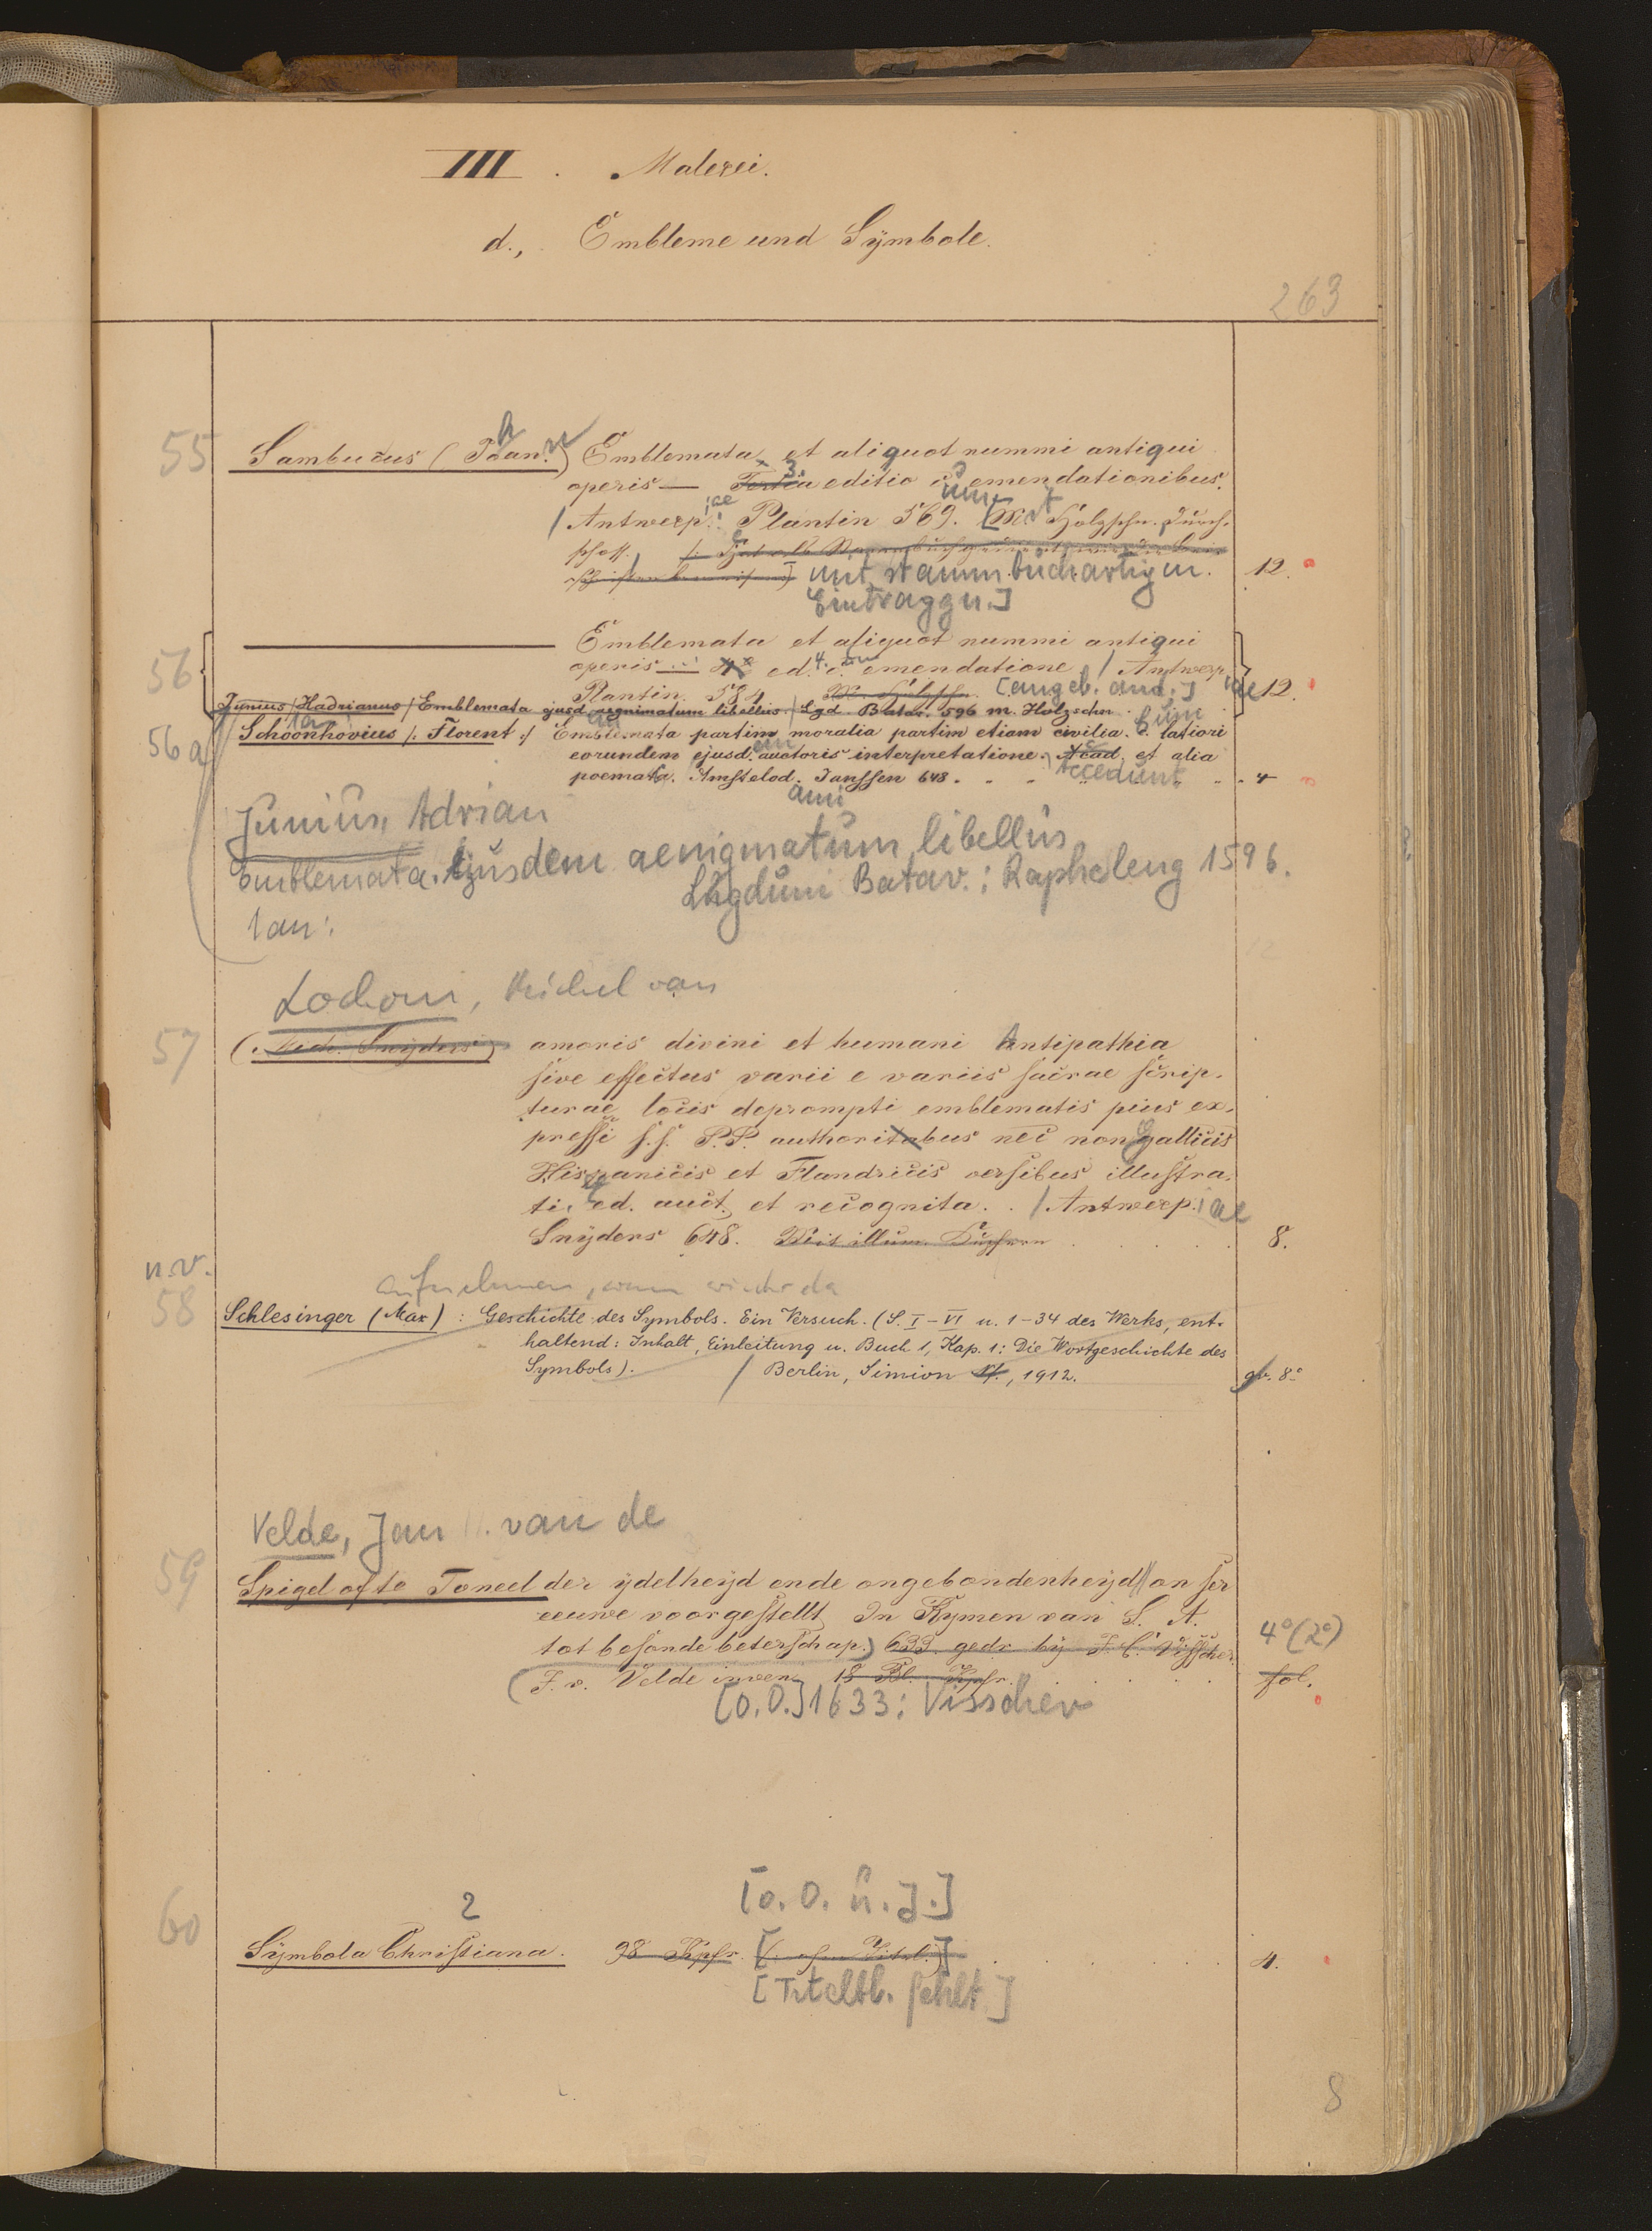 III. Malerei.
d., Embleme und Sÿmbole.
263
55 Sambucus (Joan.) Emblemata et aliquot nummi antiqui
operis — Tertia 3. editio c um emendationibus.
Antwerp. iae Plantin 569. [Mit Holzschn. Durch-
schoss.
mit stammbuchartigen. 12.
Eintraggn.]
56 Emblemata et aliquot nummi antiqui
operis ... 4 ed. 4. c. um emendatione / Antwerp. iae
Plantin 584. M. Holzsch. [angeb. and.] 12.
Junius / Hadrianus / Emblemata ejusd. aegnimatum libellus / Lgd. Batav. 596 m. Holzschn.
56a Schoonhovius /: Florent :/ Emblemata partim moralia partim etiam civilia. C. um latiori
eorundem ejusd. em auctoris interpretatione. Acad. et alia
Accedunt
poemata. Amstelod. Janssen 648. 4
ami
Junius, Adrian
Emblemata. Ejusdem aenigmatum libellus
Lugduni Batav.: Rapheleng 1596.
1 an:
Lochom, Michel van
57 (. Mich. Snÿders) amoris divini et humani Antipathia
sive effectus varii e variis sacrae scrip-
turae locis deprompti emblematis pius ex-
pressi s.s. P.P. authoritabus nec non Gallicis
Hispanicis et Flandricis versibus illustra-
ti. Ed. auct. et recognita. / Antwerp. iae
Snÿders 648. Mit illum. Kupfern 8.
n.v.
aufnehmen, wenn wieder da
58 Schlesinger (Max) : Geschichte des Symbols. Ein Versuch. (S. I – VI u. 1–34 des Werks, ent-
haltend: Inhalt, Einleitung u. Buch 1, Kap. 1: Die Wortgeschichte des
Symbols). / Berlin, Simion Nf., 1912. gr. 8°
Velde, Jan II. van de
59 Spigel ofte Toneel der ÿdelheÿd ende ongebondenheÿd onser
eeuwe voorgestellt In Rymen van S. A.
tot besonde beterschap.) 633 gedr. bij J. C. Visscher 4° (2°)
(J. v. Velde inven. 18 Bl. Kpfr. fol.
[o. O.] 1633: Visscher
[o. O. u. J.]
2
60 Sÿmbola Christiana. 98 Kpfr. 4.
[Titelbl. fehlt]
8